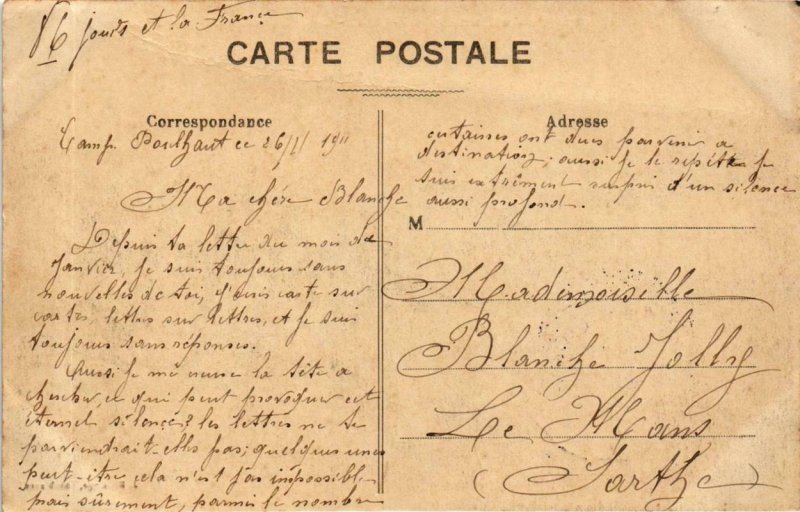 86 jours et la France
CARTE POSTALE
Correspondance
Camp Poulhaut ce 26/2/1911
Ma chère Blanche
Depuis ta lettre du mois de
Janvier, je suis toujours sans
nouvelles de toi, j'écris carte sur
cartes, lettres sur lettres, et je suis
toujours sans réponses.
Aussi je me creuse la tête a
chercher, ce qui peut provoquer cet
éternel silence? les lettres ne te
parviendrait-elles pas; quelques unes
peut-être cela n'est pas impossible
mais sûrement, parmi le nombre
Adresse
certaines ont dues parvenir a
destination; aussi je le répète je
suis extrêment surpris d'un silence
aussi profond.
M
Mademoiselle
Blanche Jolly
Le Mans
(Sarthe)